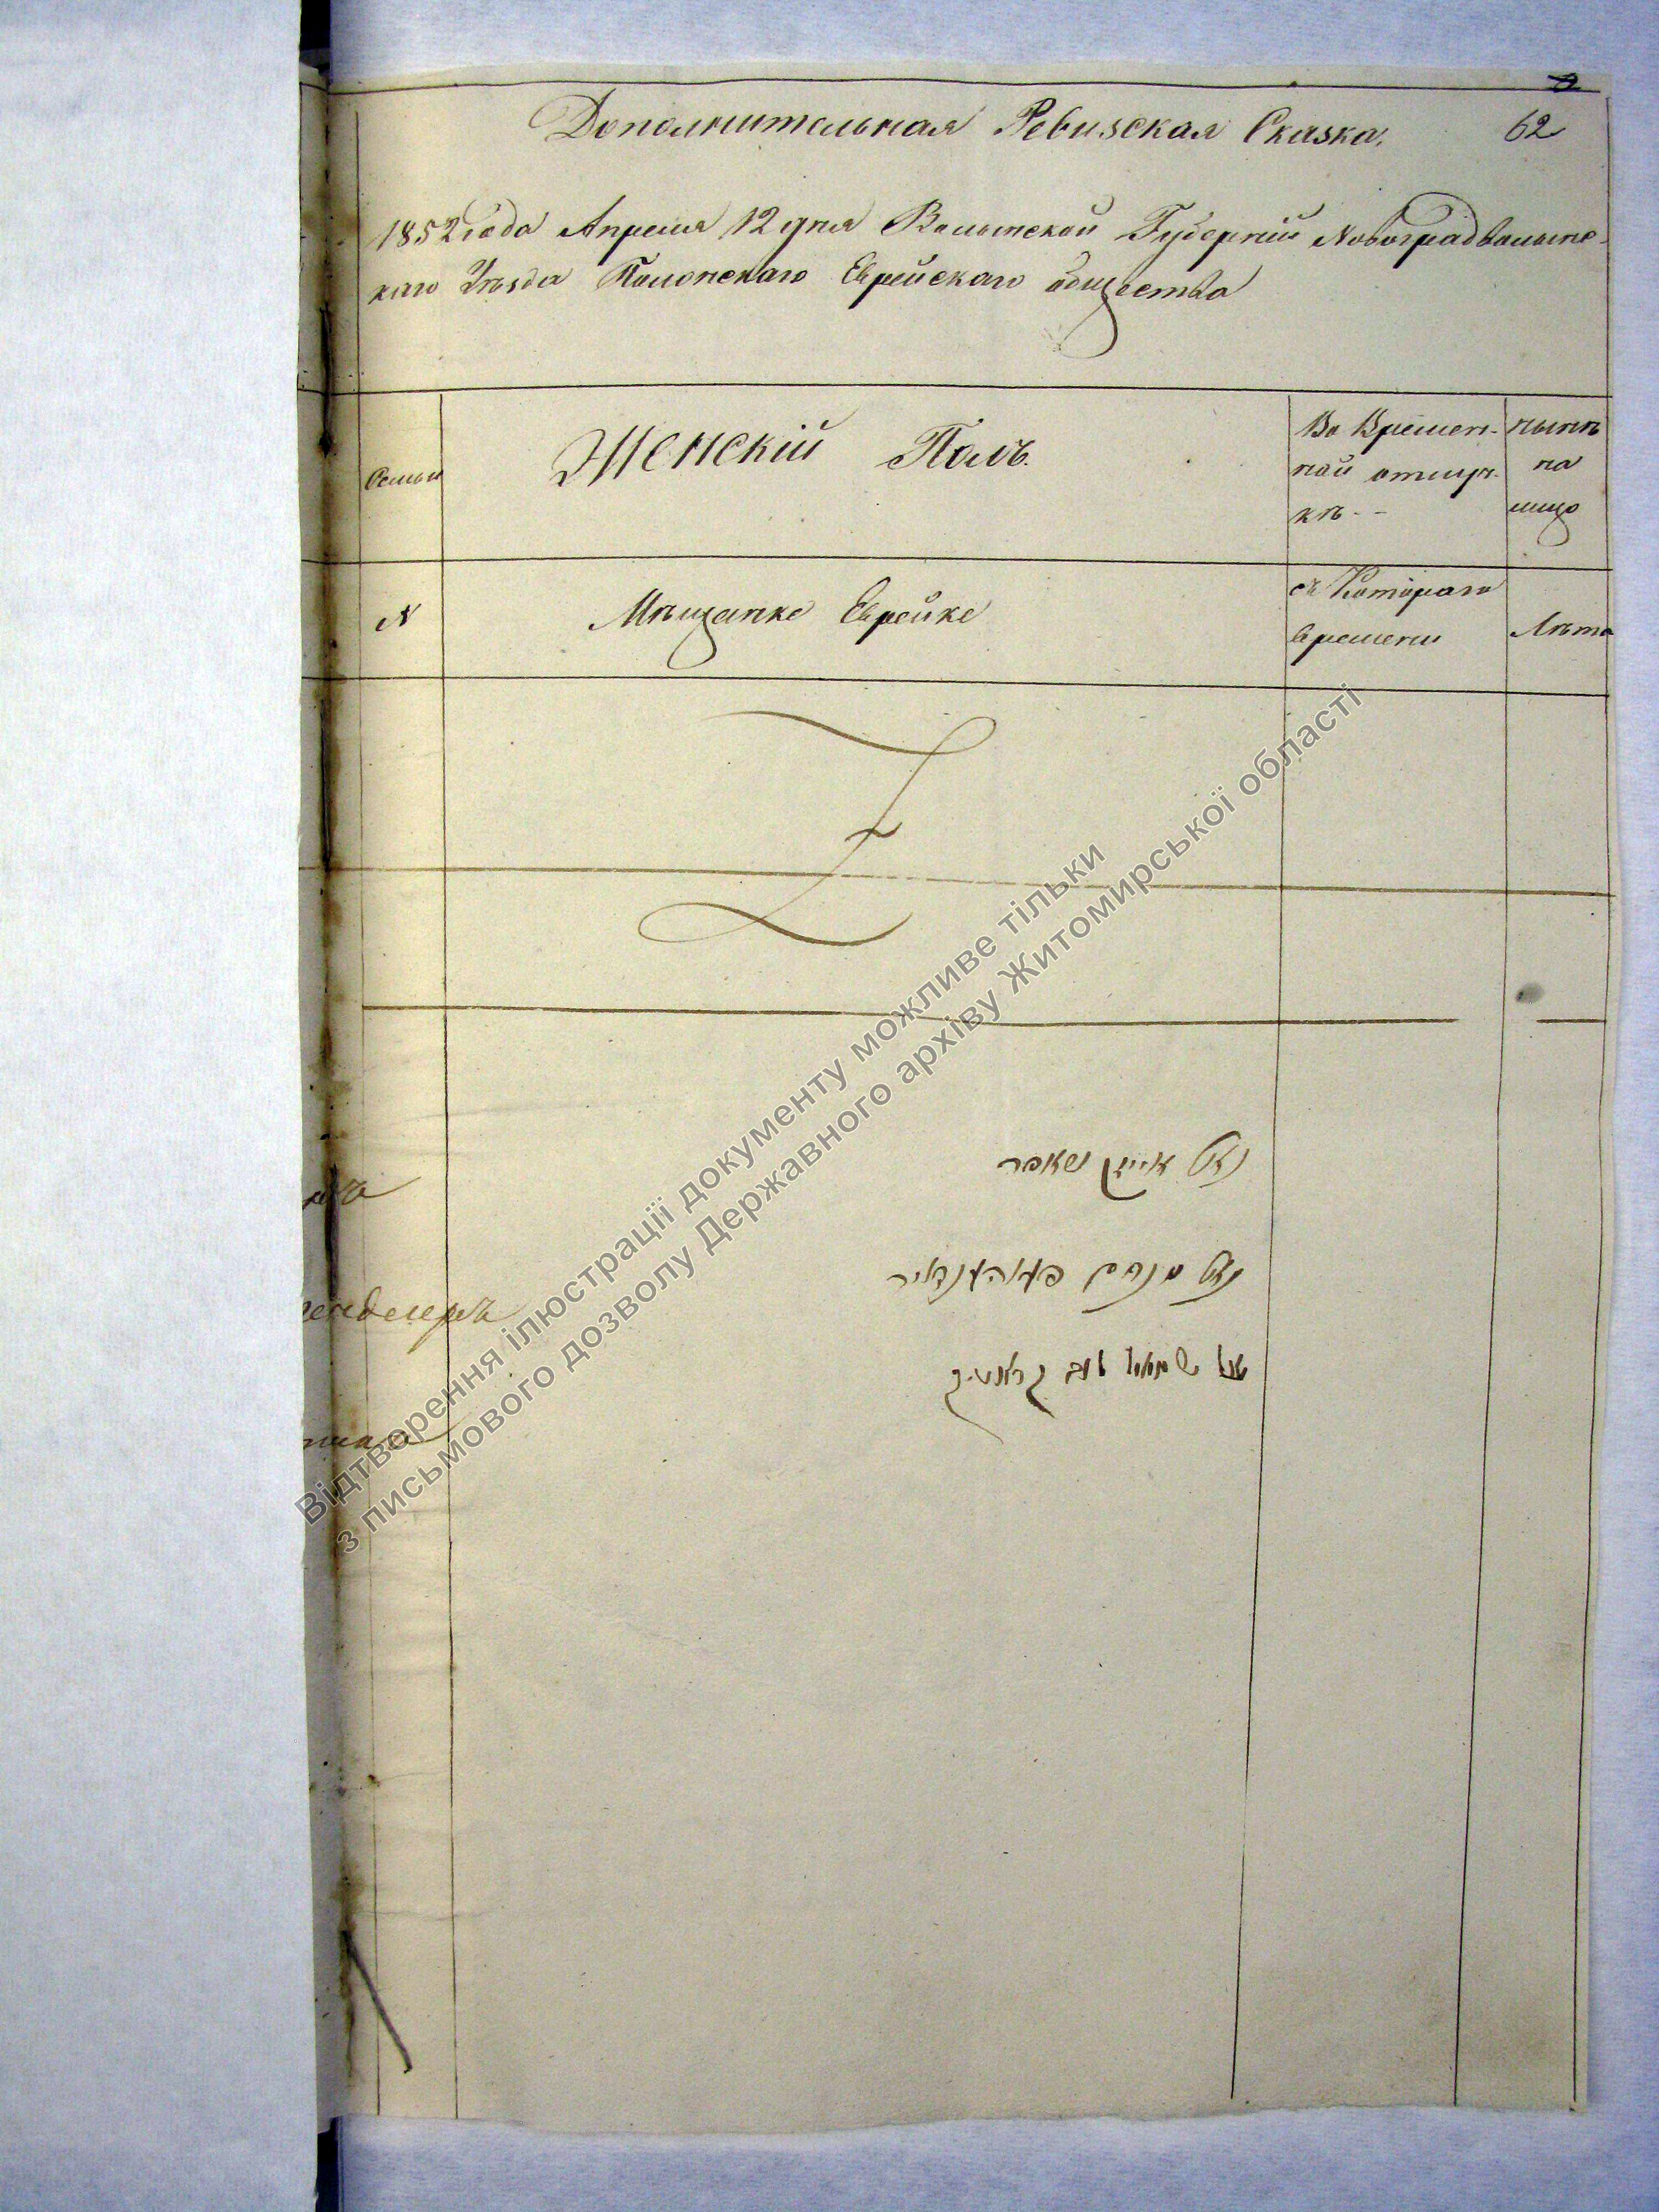 Дополнительная Ревизская Сказка.
62
1852 года Апреля 12 дня Волынской Губерніи Новоградволынс-
каго Уѣзда Полонскаго Еврейскаго общества
Семьи
Женскій Полъ.
Во Времен-
ной отлуч-
кѣ --
нынѣ
на
лицо
N
Мѣщанке Еврейке
съ Котораго
времени
Лѣта
נאם אייזיק
נאם מנחם
נאם שמואל
Відтворення ілюстрації документу можливе тільки
з письмового дозволу Державного архіву Житомирської області